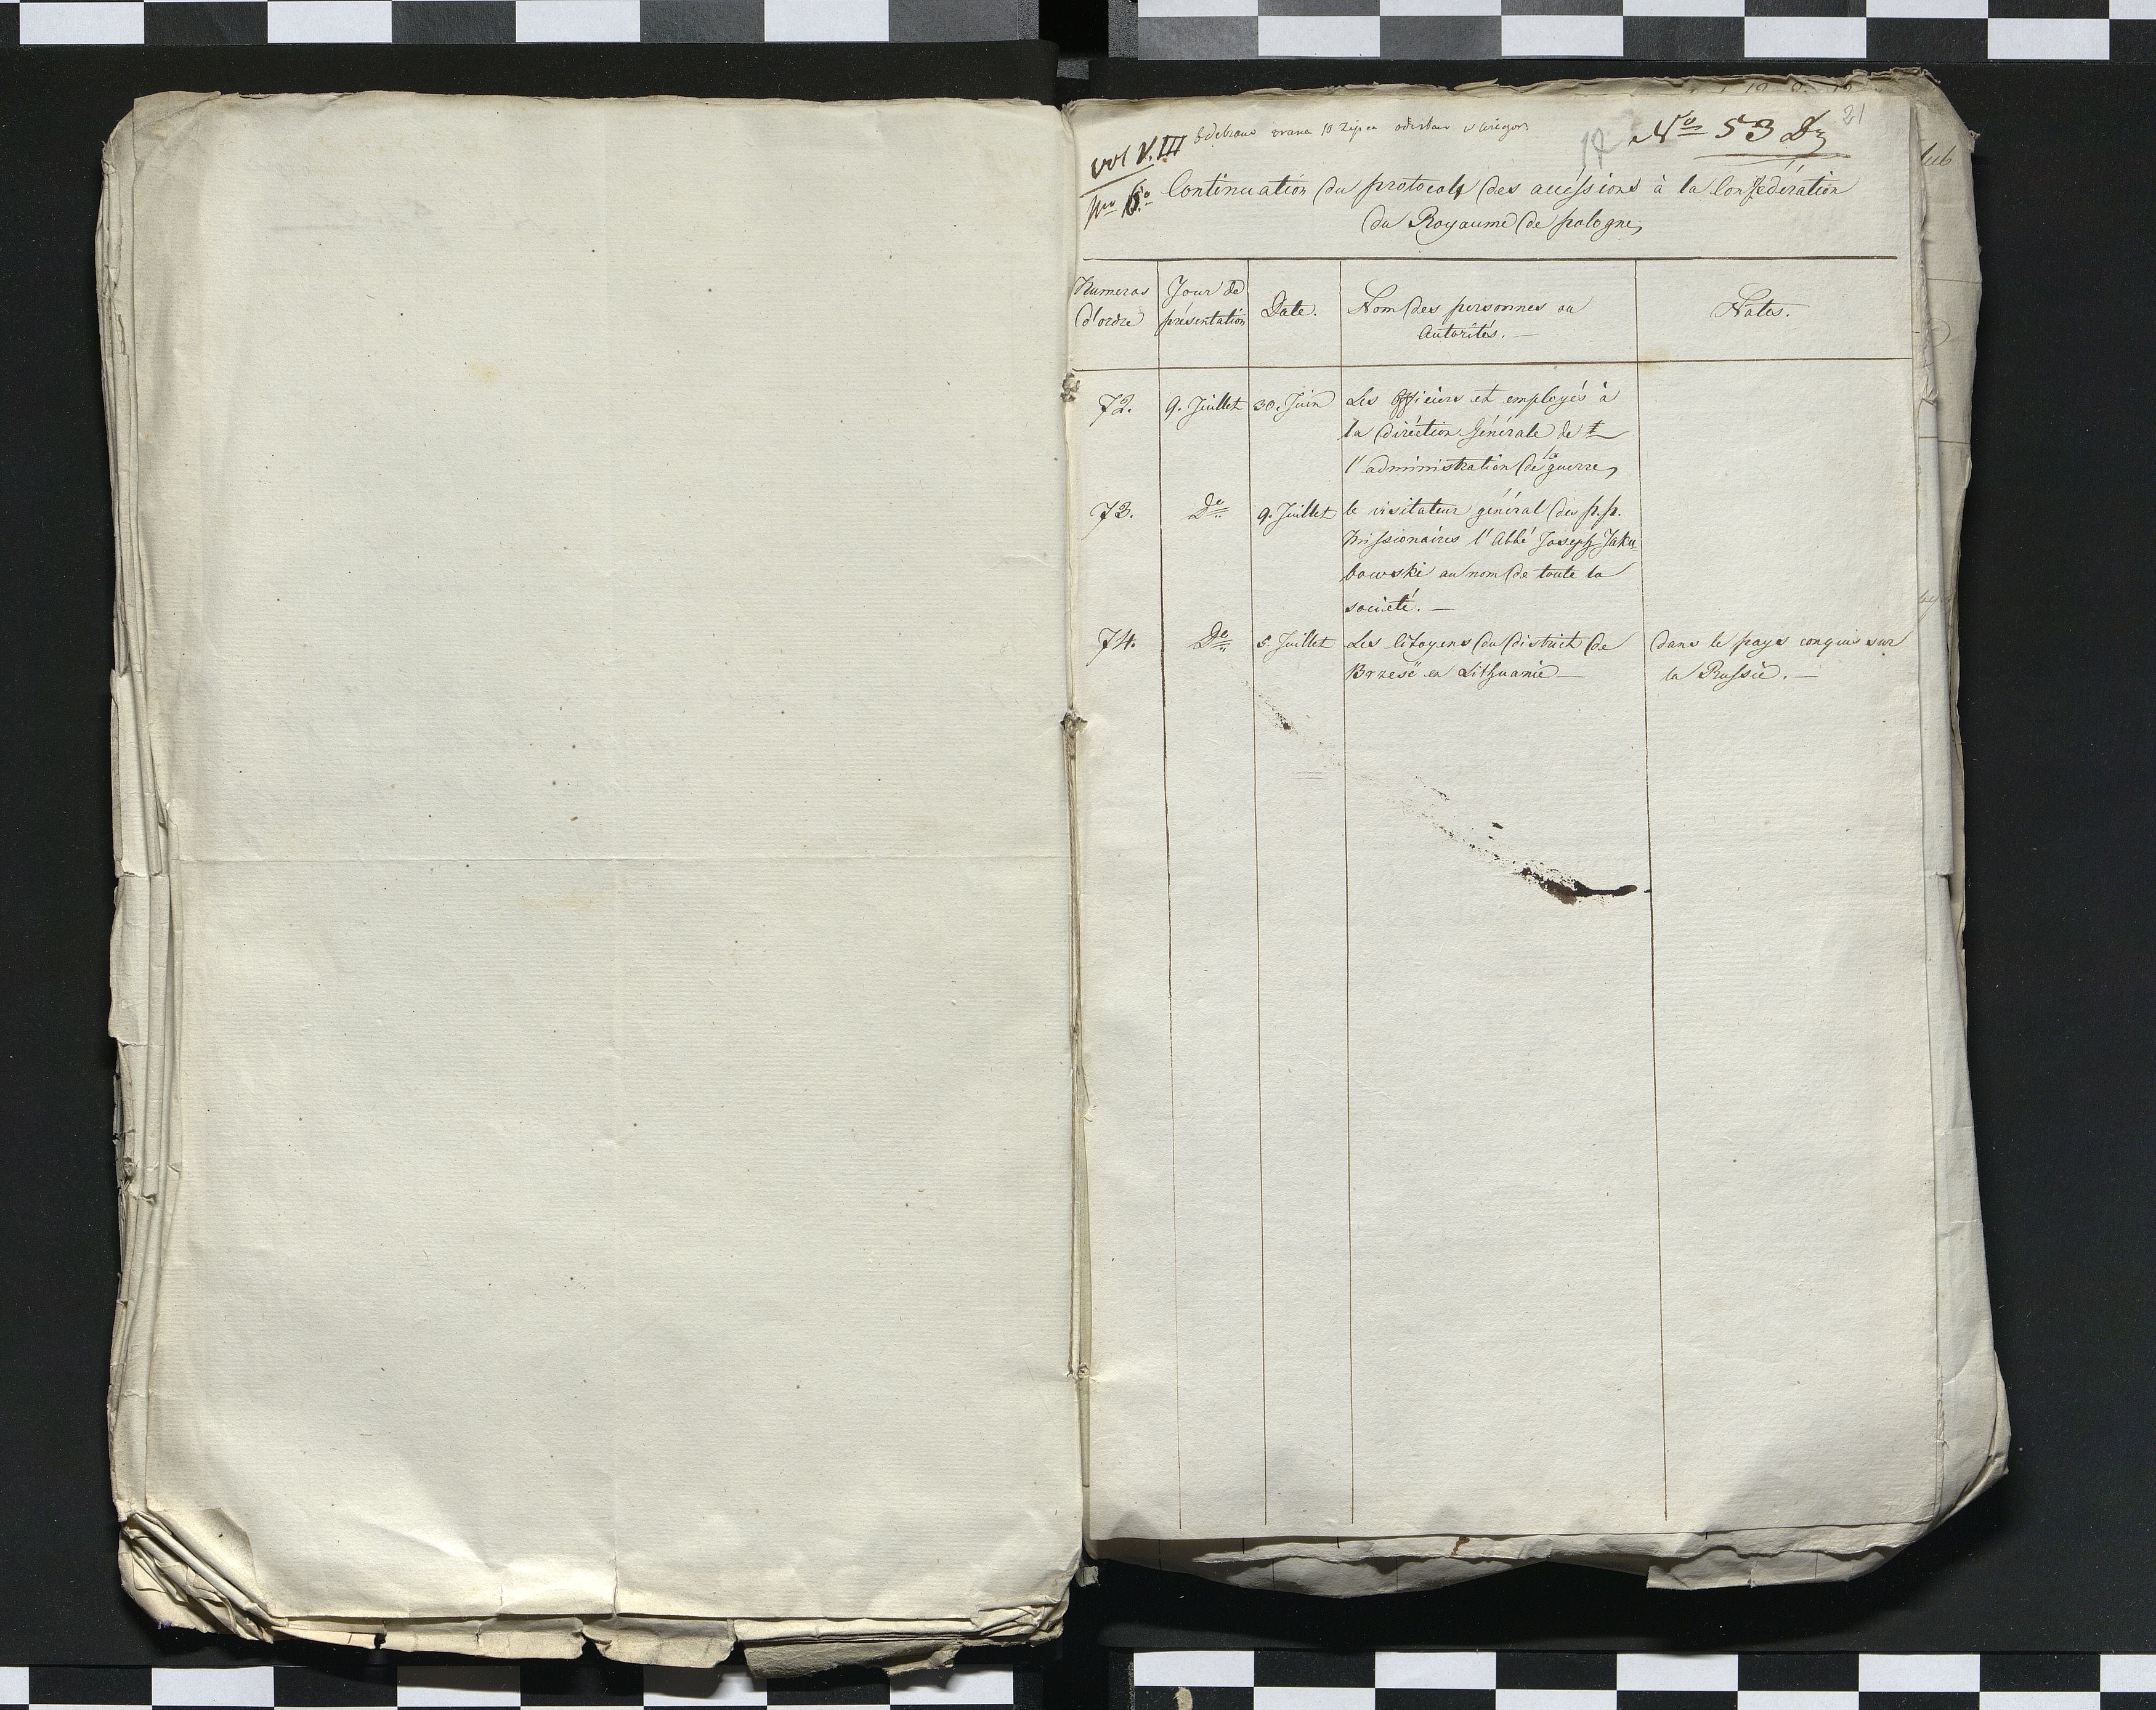 21
Nº 53 Dz
vol VIII
Nro 6º
Continuation du protocole des accessions à la Confédération
du Royaume de pologne,
Numeros d'ordre | Jour de présentation | Date. | Nom des personnes ou autorités. — | Notes.
72. | 9. Juillet | 30. Juin | Les officiers et employés à
la diréction Générale de
l'administration de la guerre,
73. | De | 9. Juillet | le visitateur général des p.p.
Missionaires l'Abbé Joseph Jaku-
bowski au nom de toute la
société. —
74. | De | 5. Juillet | Les Citoyens du district de | dans le pays conquis sur
Brzesć en Lithuanie — | la Russie. —